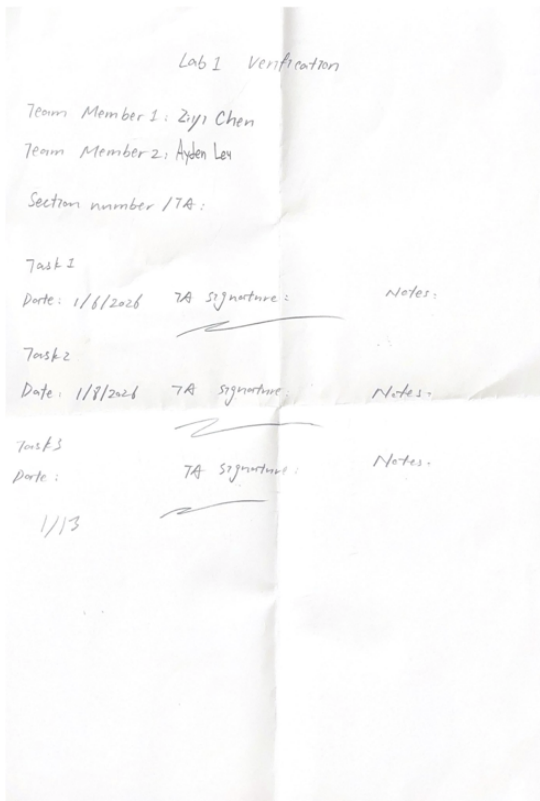 Lab 1 Verification
Team Member 1: Ziyi Chen
Team Member 2: Ayden Ley
Section number / TA:
Task 1
Date: 1/6/2026 TA signature: Notes:
Task 2
Date: 1/8/2026 TA signature: Notes:
Task 3
Date: TA signature: Notes:
1/13